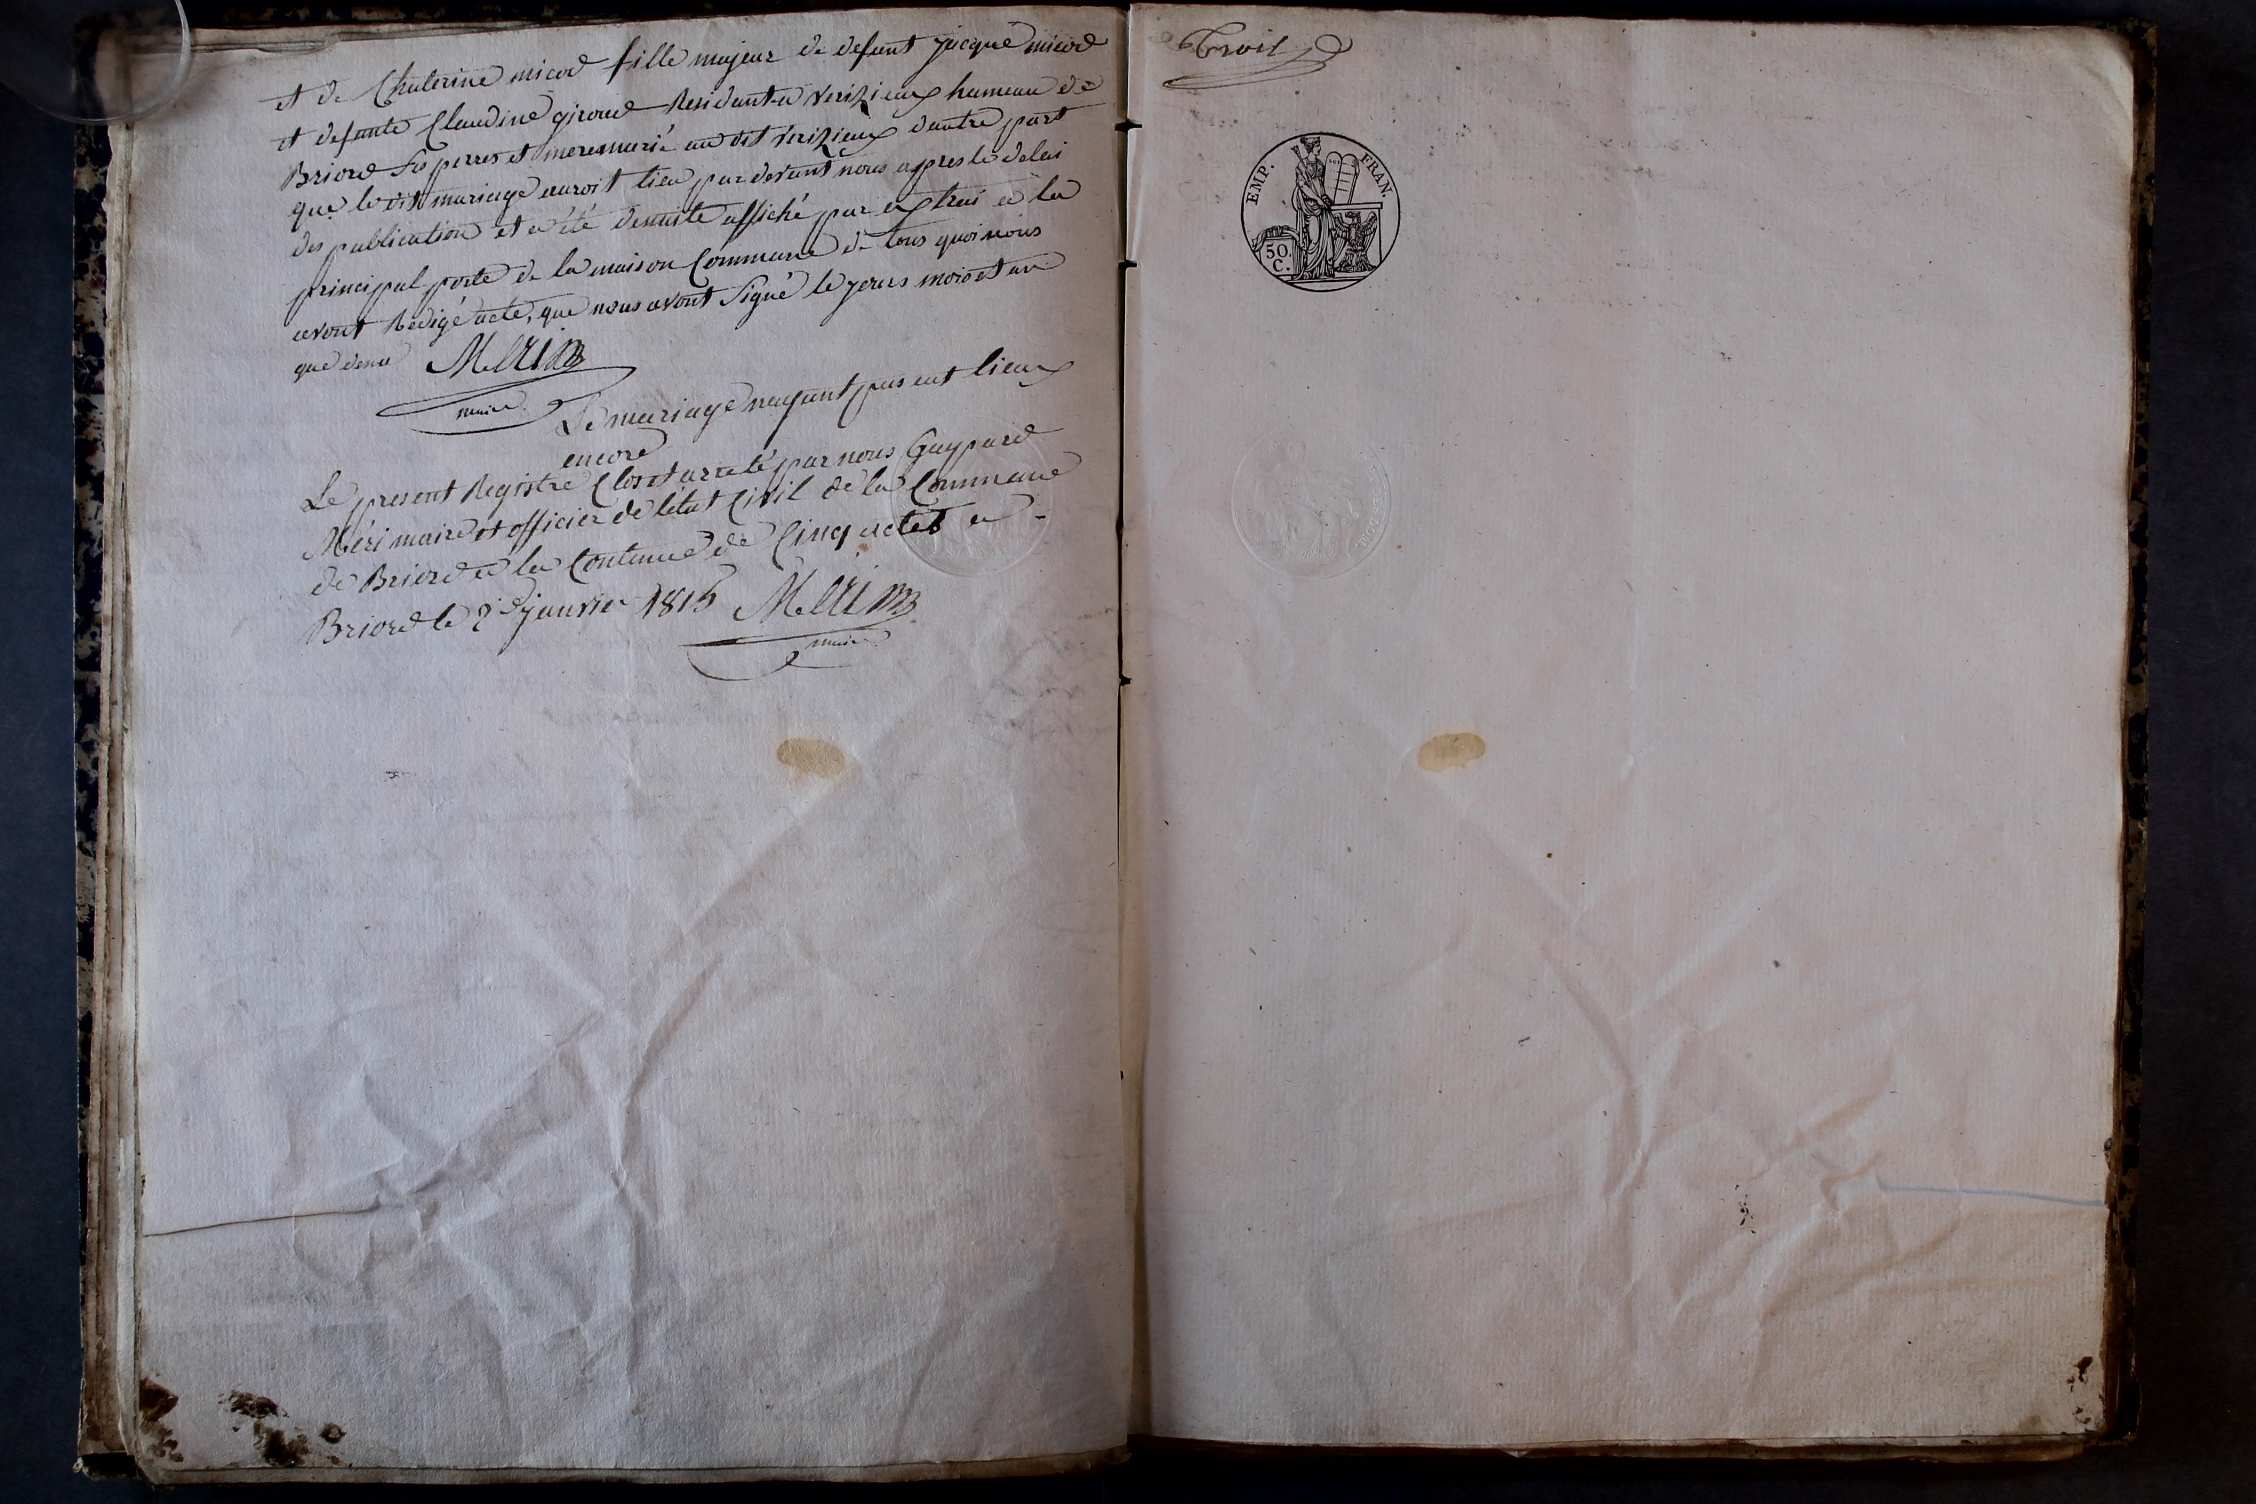 et de Chaterine micod fille majeur de defunt jacque micod
et defunte Claudine giroud Residant a verizieux hameau de
Briord ses perres et mere marié au dit vérizieux d'autre part
que le dit mariage auroit lieu par devant nous appres le delai
des publication et a été denuite affiché par extrai a la
principal porte de la maison Commune de tous quoi nous
avont Redigé acte, que nous avont Signé le jours mois et an
que denu Meri
maire
Le mariage nayant pas eut lieux
encore
Le present Registre Clos et arreté par nous Gaspard
Méri maire et officier de l'état Civil de la Commune
de Briord a la Contenue de Cinq actes a
Briord le 2 janvier 1815 Meri
maire
Troit
EMP. FRAN.
50.
C.